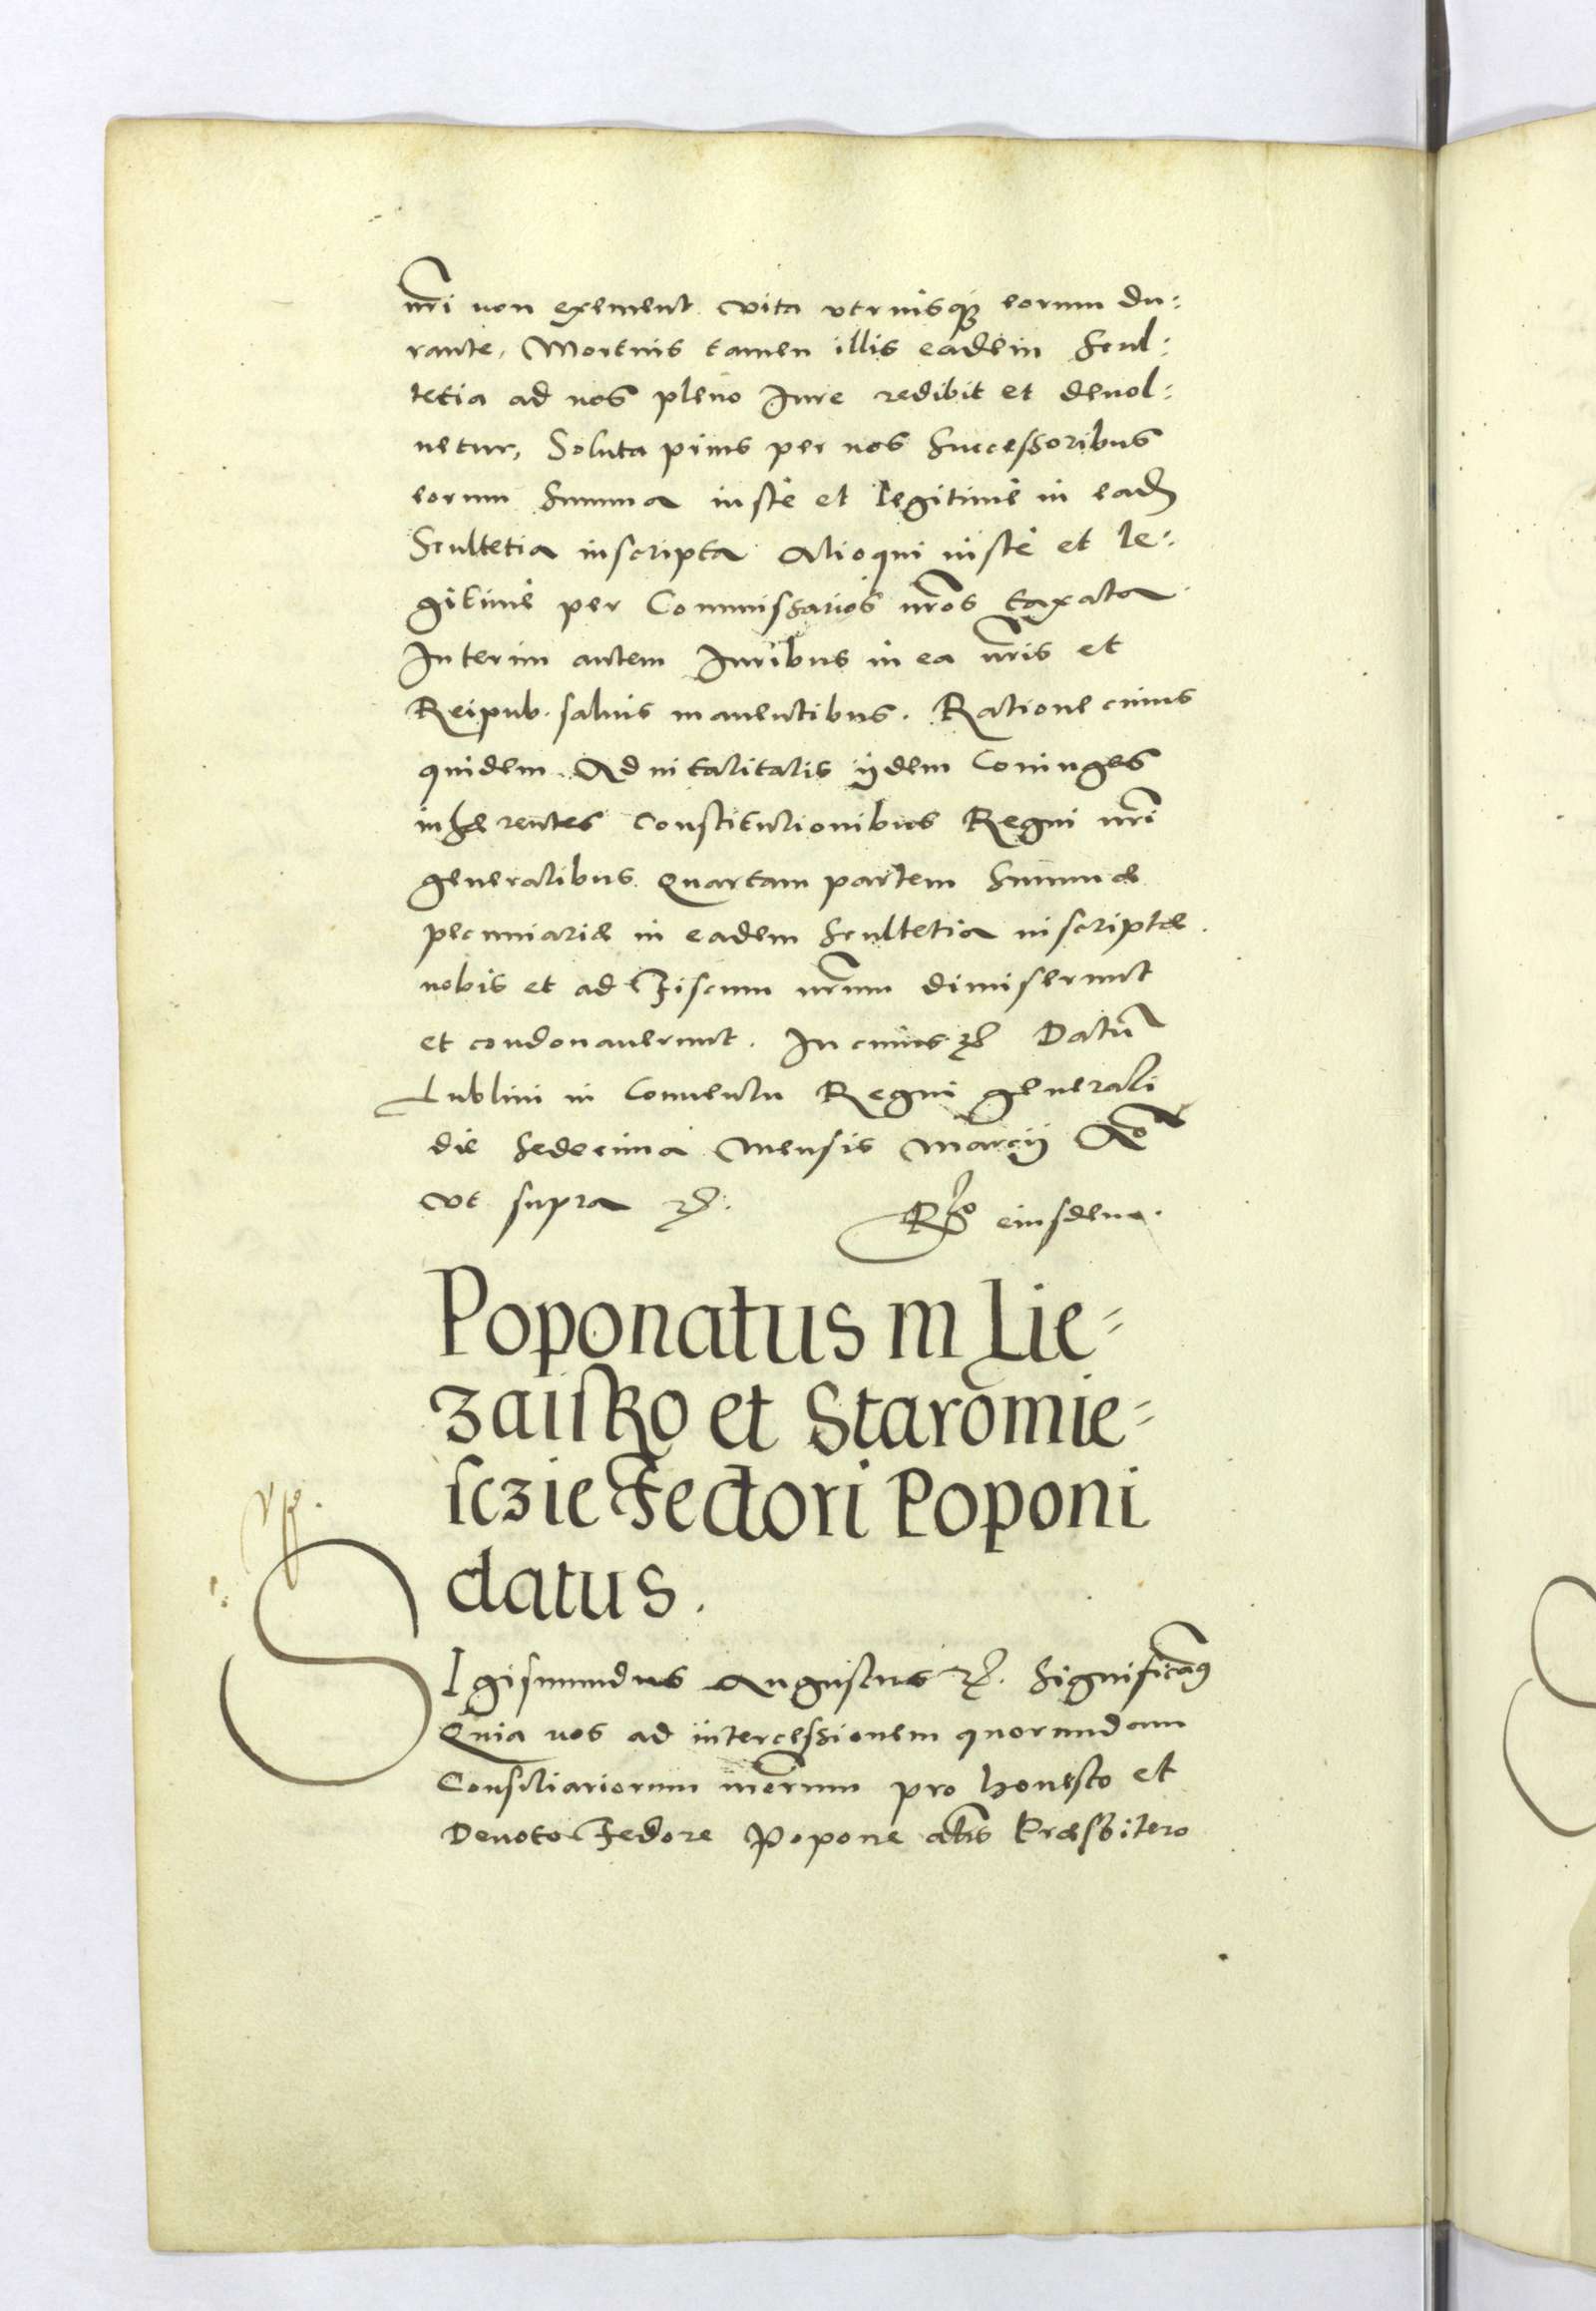 nr̃i non exement vita vtriusq3 eorum du:
rante, Mortuis tamen illis eadem Scul:
tetia ad nos pleno Iure redibit et deuol:
uetur, Soluta prius per nos Successoribus
eorum Summa iuste et legitime in eadẽ
Scultetia inscripta Alioqui iuste et le:
gitime per Commissarios nr̃os taxata
Interim autem Iuribus in ea nr̃is et
Reipub. saluis manentibus. Ratione cuius
quidem Aduitalitatis ijdem Coniuges
inhærentes Constitutionibus Regni nr̃i
generalibus quartam partem Summæ
pecuniariæ in eadem Scultetia inscriptæ
nobis et ad Fiscum nr̃um dimiserunt
et condonauerunt. In cuius rei Datũ
Lublini in Conuentu Regni generali
die Sedecima Mensis Marcij Ao
vt supra etc.
Ro eiusdem.
Poponatus in Lie=
zaisko et Staromie=
sczie Fedori Poponi
datus.
SIgismundus Augustus etc. Significam9
Quia nos ad intercessionem quorundam
Consiliariorum nr̃orum pro honesto et
Deuoto Fedore Popone als Præsbitero